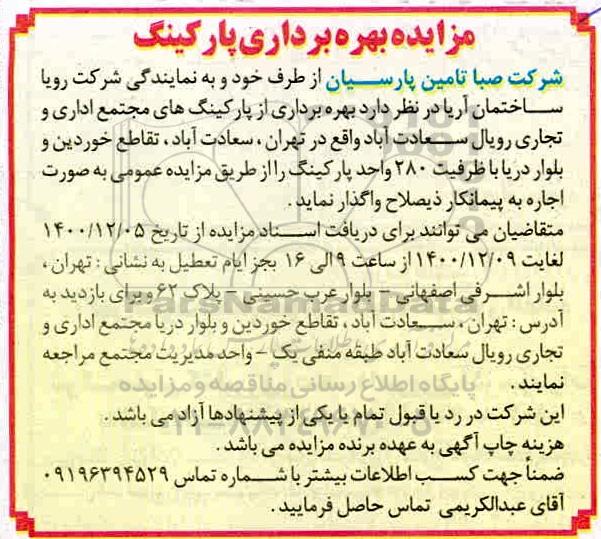 مزایده بهره برداری پارکینگ
شرکت صبا تامین پارسیان از طرف خود و به نمایندگی شرکت رویا
ساختمان آریا در نظر دارد بهره برداری از پارکینگ های مجتمع اداری و
تجاری رویال سعادت آباد واقع در تهران ، سعادت آباد ، تقاطع خوردین و
بلوار دریا با ظرفیت ۲۸۰ واحد پارکینگ را از طریق مزایده عمومی به صورت
اجاره به پیمانکار ذیصلاح واگذار نماید .
متقاضیان می توانند برای دریافت اسناد مزایده از تاریخ ۱۴۰۰/۱۲/۰۵
لغایت ۱۴۰۰/۱۲/۰۹ از ساعت ۹ الی ۱۶ بجز ایام تعطیل به نشانی : تهران ،
بلوار اشرفی اصفهانی – بلوار عرب حسینی – پلاک ۶۲ و برای بازدید به
ParsNamadData
آدرس : تهران ، سعادت آباد ، تقاطع خوردین و بلوار دریا مجتمع اداری و
تجاری رویال سعادت آباد طبقه منفی یک – واحد مدیریت مجتمع مراجعه
نمایند .
پایگاه اطلاع رسانی مناقصه و مزایده
این شرکت در رد یا قبول تمام یا یکی از پیشنهادها آزاد می باشد .
هزینه چاپ آگهی به عهده برنده مزایده می باشد .
ضمناً جهت کسب اطلاعات بیشتر با شماره تماس ۰۹۱۹۶۳۹۴۵۲۹
آقای عبدالکریمی تماس حاصل فرمایید .